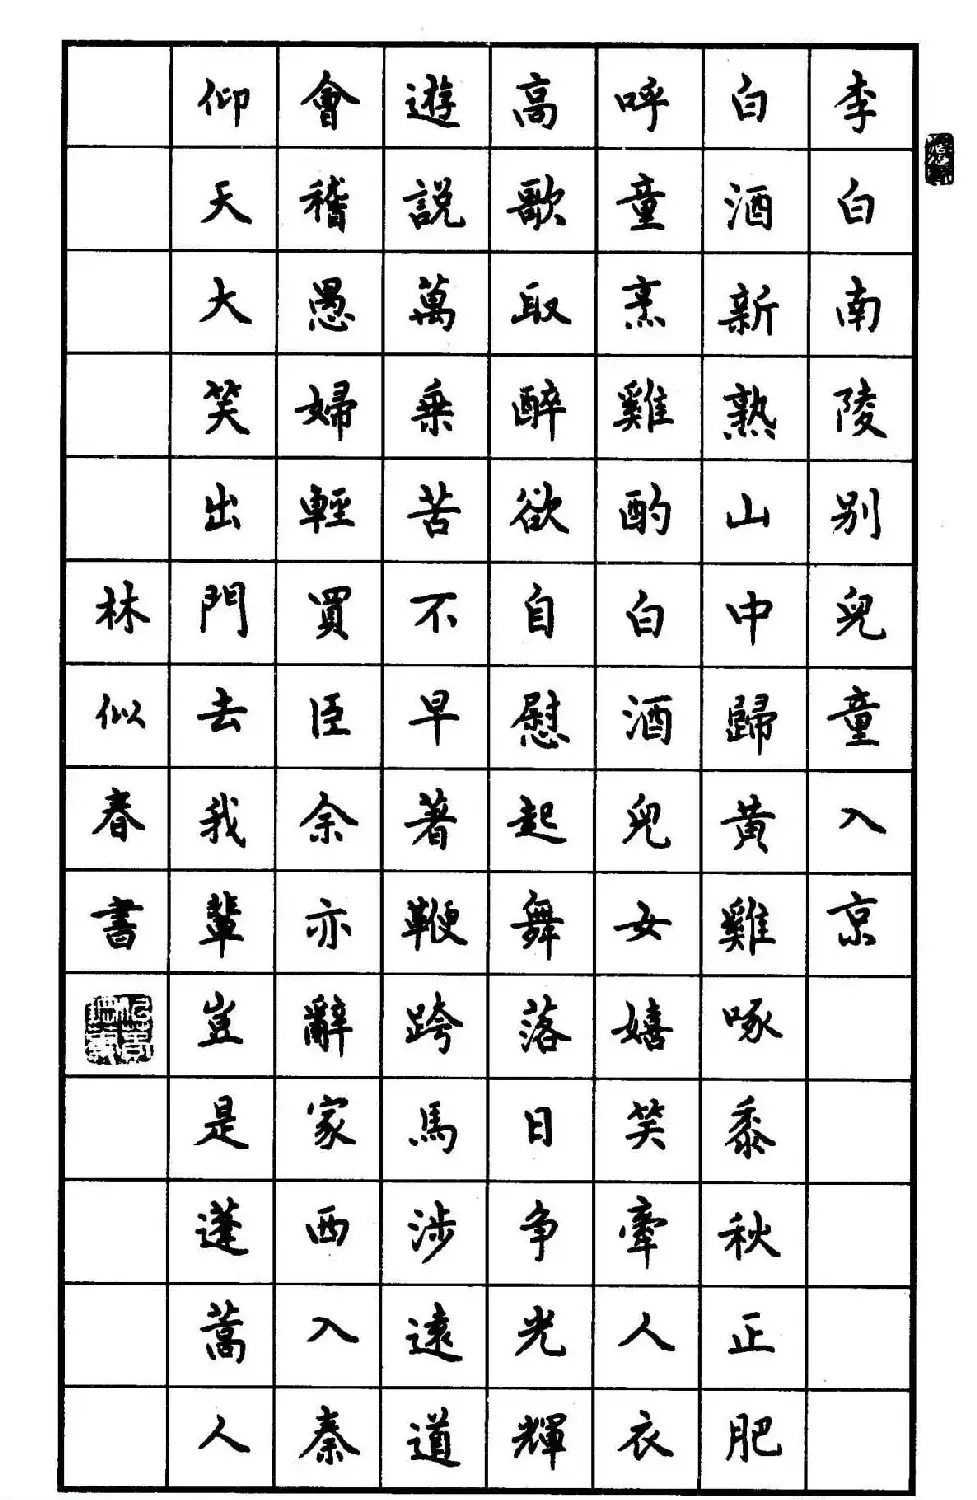 李白南陵别兒童入京
白酒新熟山中歸黄雞啄黍秋正肥
呼童烹雞酌白酒兒女嬉笑牽人衣
高歌取醉欲自慰起舞落日争光輝
遊説萬乗苦不早著鞭跨馬涉遠道
會稽愚婦輕買臣余亦辭家西入秦
仰天大笑出門去我輩豈是蓬蒿人
林似春書